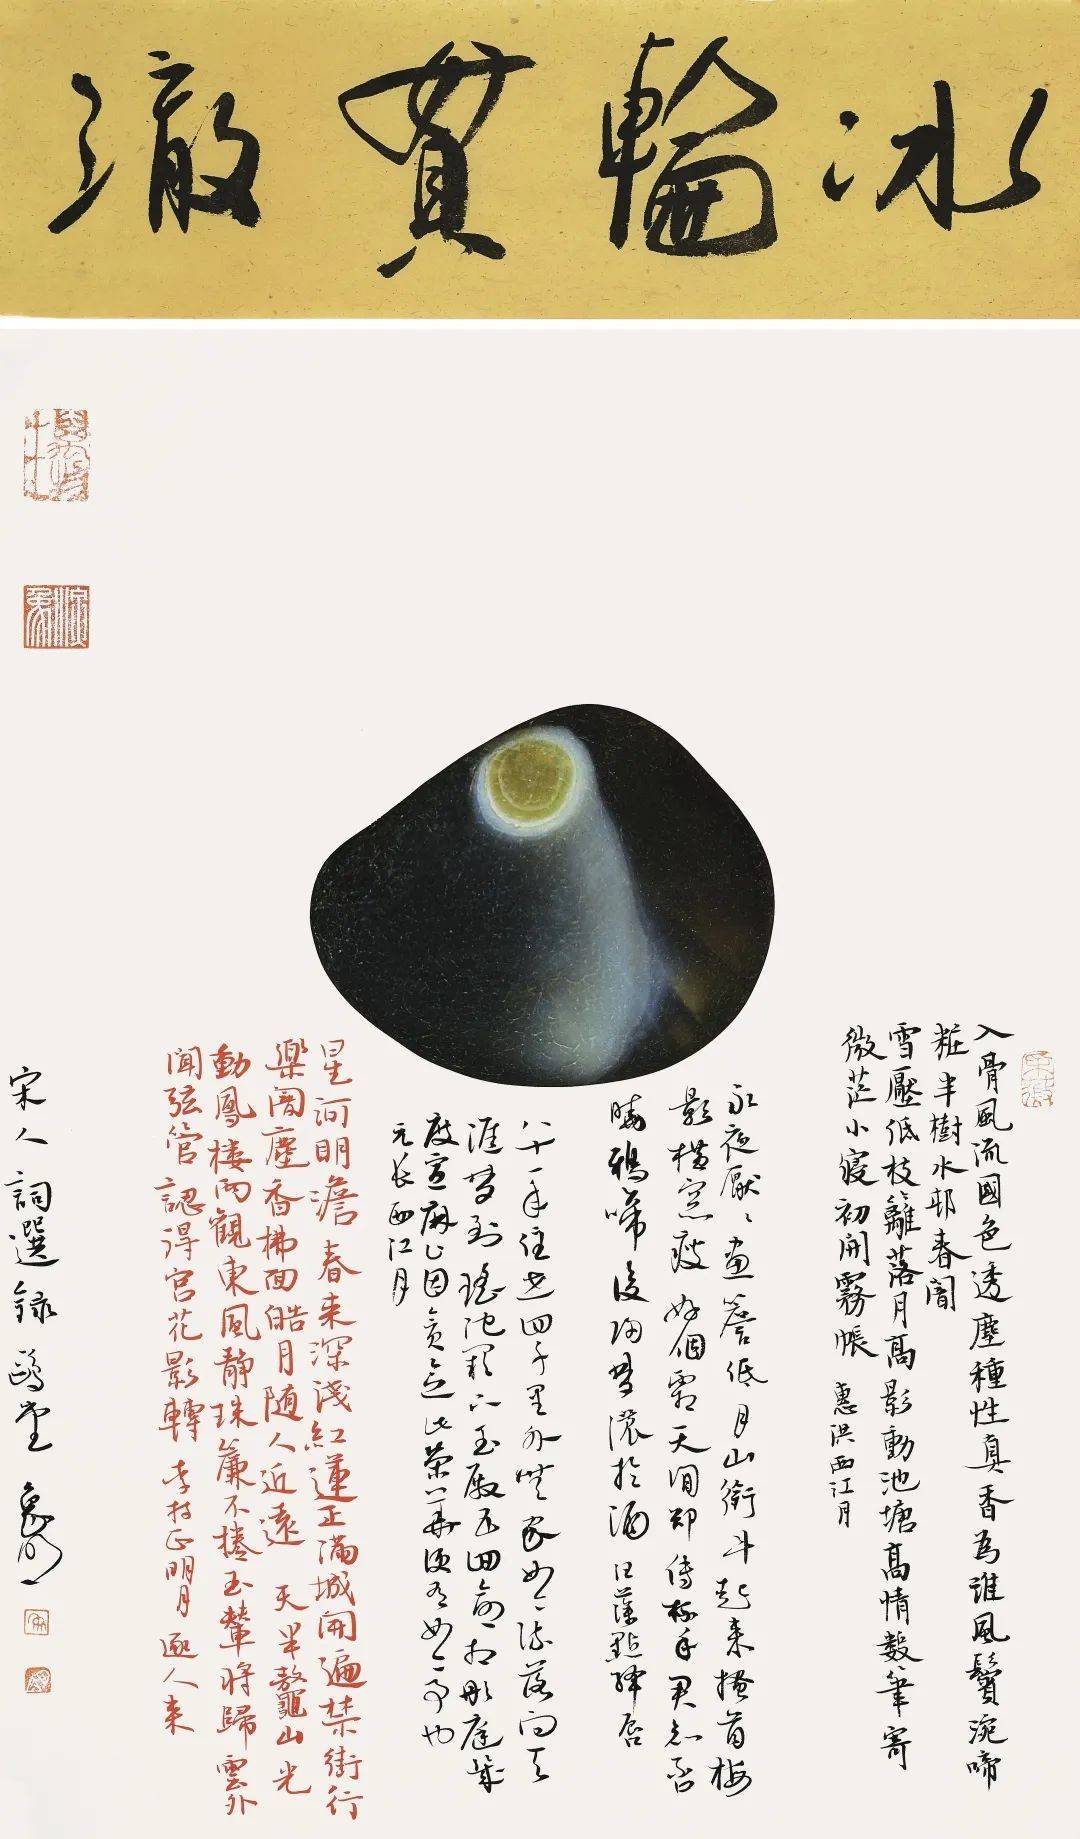 冰輪貫澈
入骨風流國色透塵種性真香為誰風鬢涴啼
粧半樹水邨春闇
雪壓低枝籬落月高影動池塘高情數筆寄
微茫小寢初開霧帳 惠洪西江月
永夜厭〻畫簷低月山銜斗起來搔首梅
影橫窓瘦 好個霜天閒却傳杯手君知否
曉鴉啼後歸夢濃於酒 汪藻點絳唇
八十一年住世四千里外無家如今流落向天
涯夢到瑤池闕下玉殿五回命相彤庭幾
度宣麻止因貪此榮華有如今事也
元長西江月
星河明澹 春来深淺紅蓮正滿城開遍禁街行
樂闇塵香拂面皓月随人近遠 天半鼇山光
動鳳樓兩觀東風静珠簾不捲玉輦将歸雲外
聞弦管 認得宮花影轉 李持正明月逐人来
宋人詞選錄 鷗堂